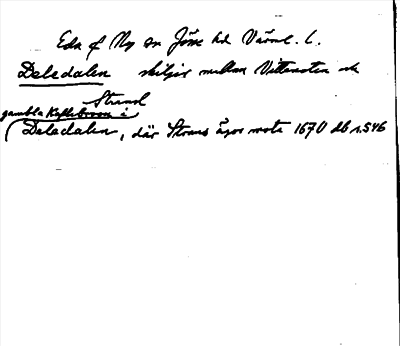 Eda sf Ny sn Jösse hd Värml. l.
Deledalen skiljer mellan Vittensten och
Strand
gambla Kafleboron i
Deledalen, där Strans ägor mota 1670 db s. 546